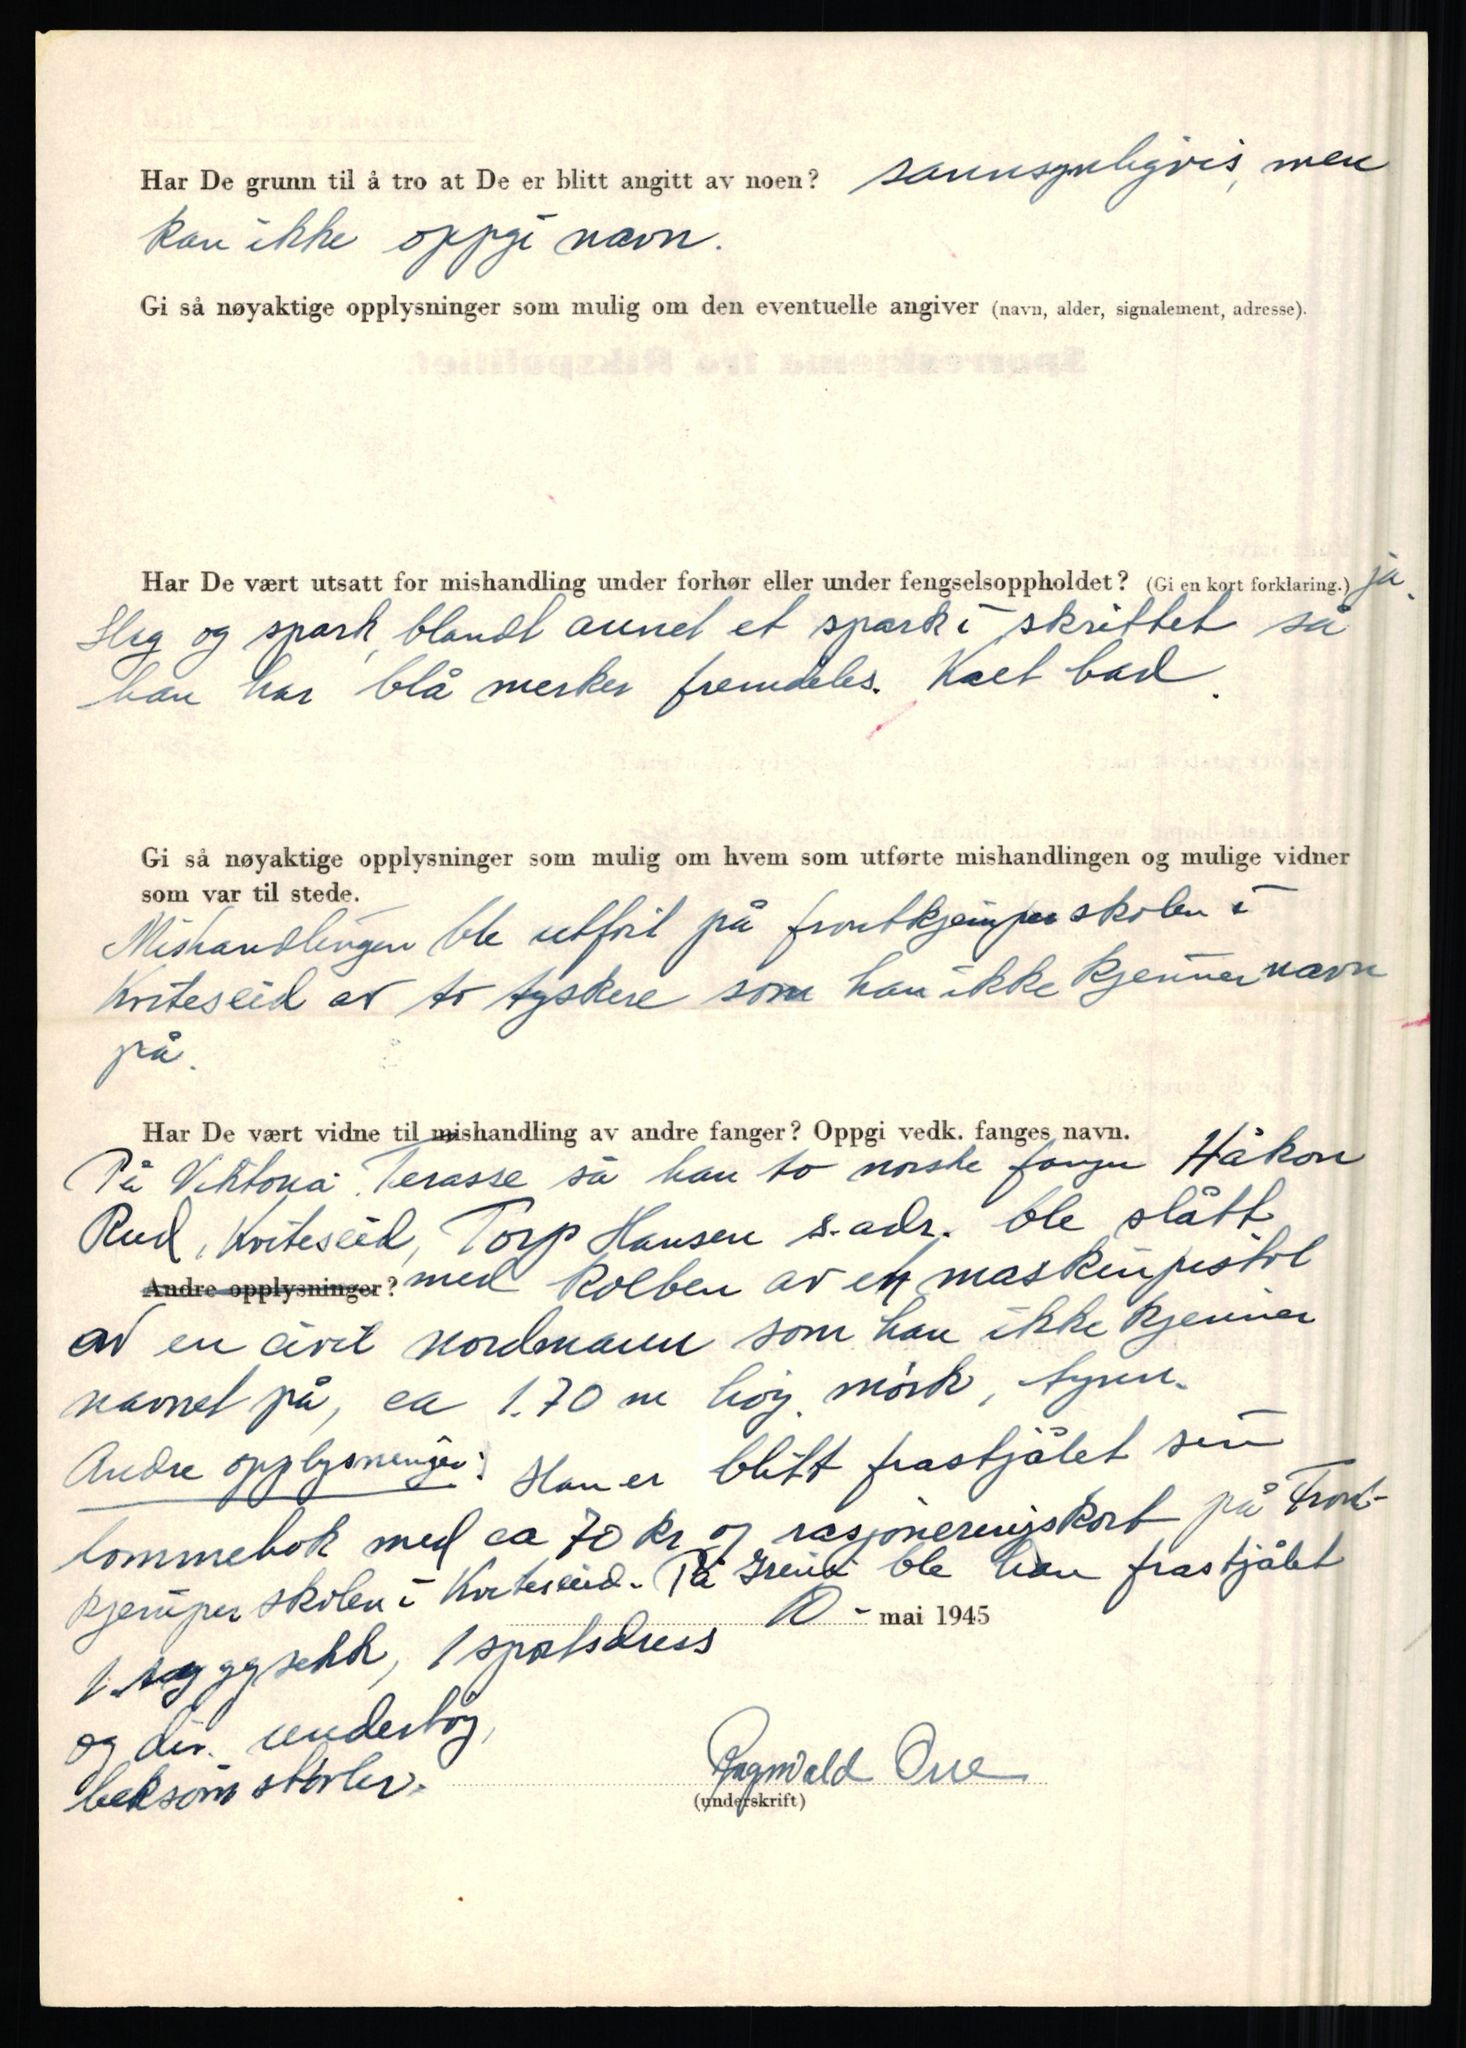 Har De grunn til å tro at De er blitt angitt av noen? sannsynligvis, men
kan ikke oppgi navn.
Gi så nøyaktige opplysninger som mulig om den eventuelle angiver (navn, alder, signalement, adresse).
Har De vært utsatt for mishandling under forhør eller under fengselsoppholdet? (Gi en kort forklaring.) ja.
Slag og spark, blandt annet et spark i skrittet så
han har blå merker fremdeles. Kaldt bad.
Gi så nøyaktige opplysninger som mulig om hvem som utførte mishandlingen og mulige vidner
som var til stede.
Mishandlingen ble utført på frontkjemperskolen i
Kviteseid av to tyskere som han ikke kjenner navn
på.
Har De vært vidne til mishandling av andre fanger? Oppgi vedk. fanges navn.
På Viktoria Terasse så han to norske fanger Håkon
Rud, Kviteseid, Torp Hansen s. adr. ble slått
Andre opplysninger? med kolben av en maskinpistol
av en civil nordmann som han ikke kjenner
navnet på, ca 1.70 m høy, mørk, tynn.
Andre opplysninger: Han er blitt frastjålet sin
lommebok med ca 70 kr og rasjoneringskort på Front-
kjemperskolen i Kviteseid. På Grini ble han frastjålet
10 - mai 1945
1 ryggsekk, 1 sportsdress
og div. undertøy,
beksømstøvler.
Ragnvald
(underskrift)